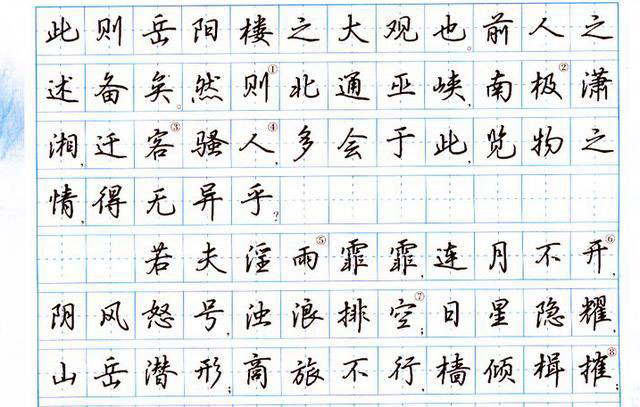 此则岳阳楼之大观也。前人之
述备矣。然则①北通巫峡，南极②潇
湘，迁客③骚人④，多会于此，览物之
情，得无异乎？
若夫淫雨⑤霏霏，连月不开⑥，
阴风怒号，浊浪排空⑦；日星隐耀，
山岳潜形；商旅不行，樯倾楫摧⑧；